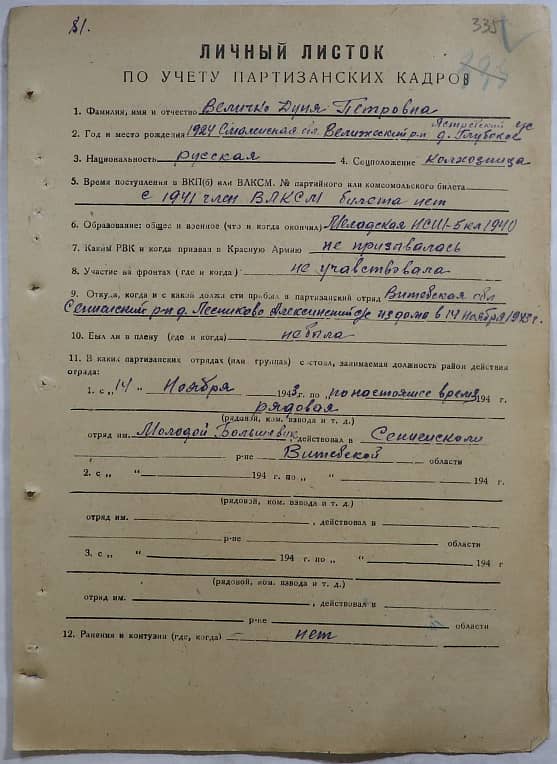 81.
335
ЛИЧНЫЙ ЛИСТОК
ПО УЧЕТУ ПАРТИЗАНСКИХ КАДРОВ
1. Фамилия, имя и отчество Величко Дуня Петровна
2. Год и место рождения 1924 Смоленская обл. Велижский р-н д. Глубское
3. Национальность русская 4. Соцположение Колхозница
5. Время поступления в ВКП(б) или ВЛКСМ. № партийного или комсомольского билета
с 1941 член ВЛКСМ билета нет
6. Образование: общее и военное (что и когда окончил) НСШ-5 кл 1940
7. Каким РВК и когда призван в Красную Армию не призывалась
8. Участие на фронтах (где и когда) не учавствовала
9. Откуда, когда и с какой должности прибыл в партизанский отряд Витебская обл
Сенненский р-н д. Лесниково Алексинский с/с из дома в 14 ноября 1943 г.
10. Был ли в плену (где и когда) небыла
11. В каких партизанских отрядах (или группах) состоял, занимаемая должность район действия
отряда:
1. с „14 „ Ноября 1943 г. по „ по настоящее время 194 г.
рядовая
(рядовой, ком. взвода и т. д.)
отряд им. Молодой Большевик, действовал в Сенненском
р-не Витебской области
2. с „ “ 194 г. по „ “ 194 г.
(рядовой, ком. взвода и т. д.)
отряд им. , действовал в
р-не области
3. с „ “ 194 г. по „ “ 194 г
(рядовой, ком. взвода и т. д.)
отряд им. , действовал в
р-не области
12. Ранения и контузии (где, когда) — нет